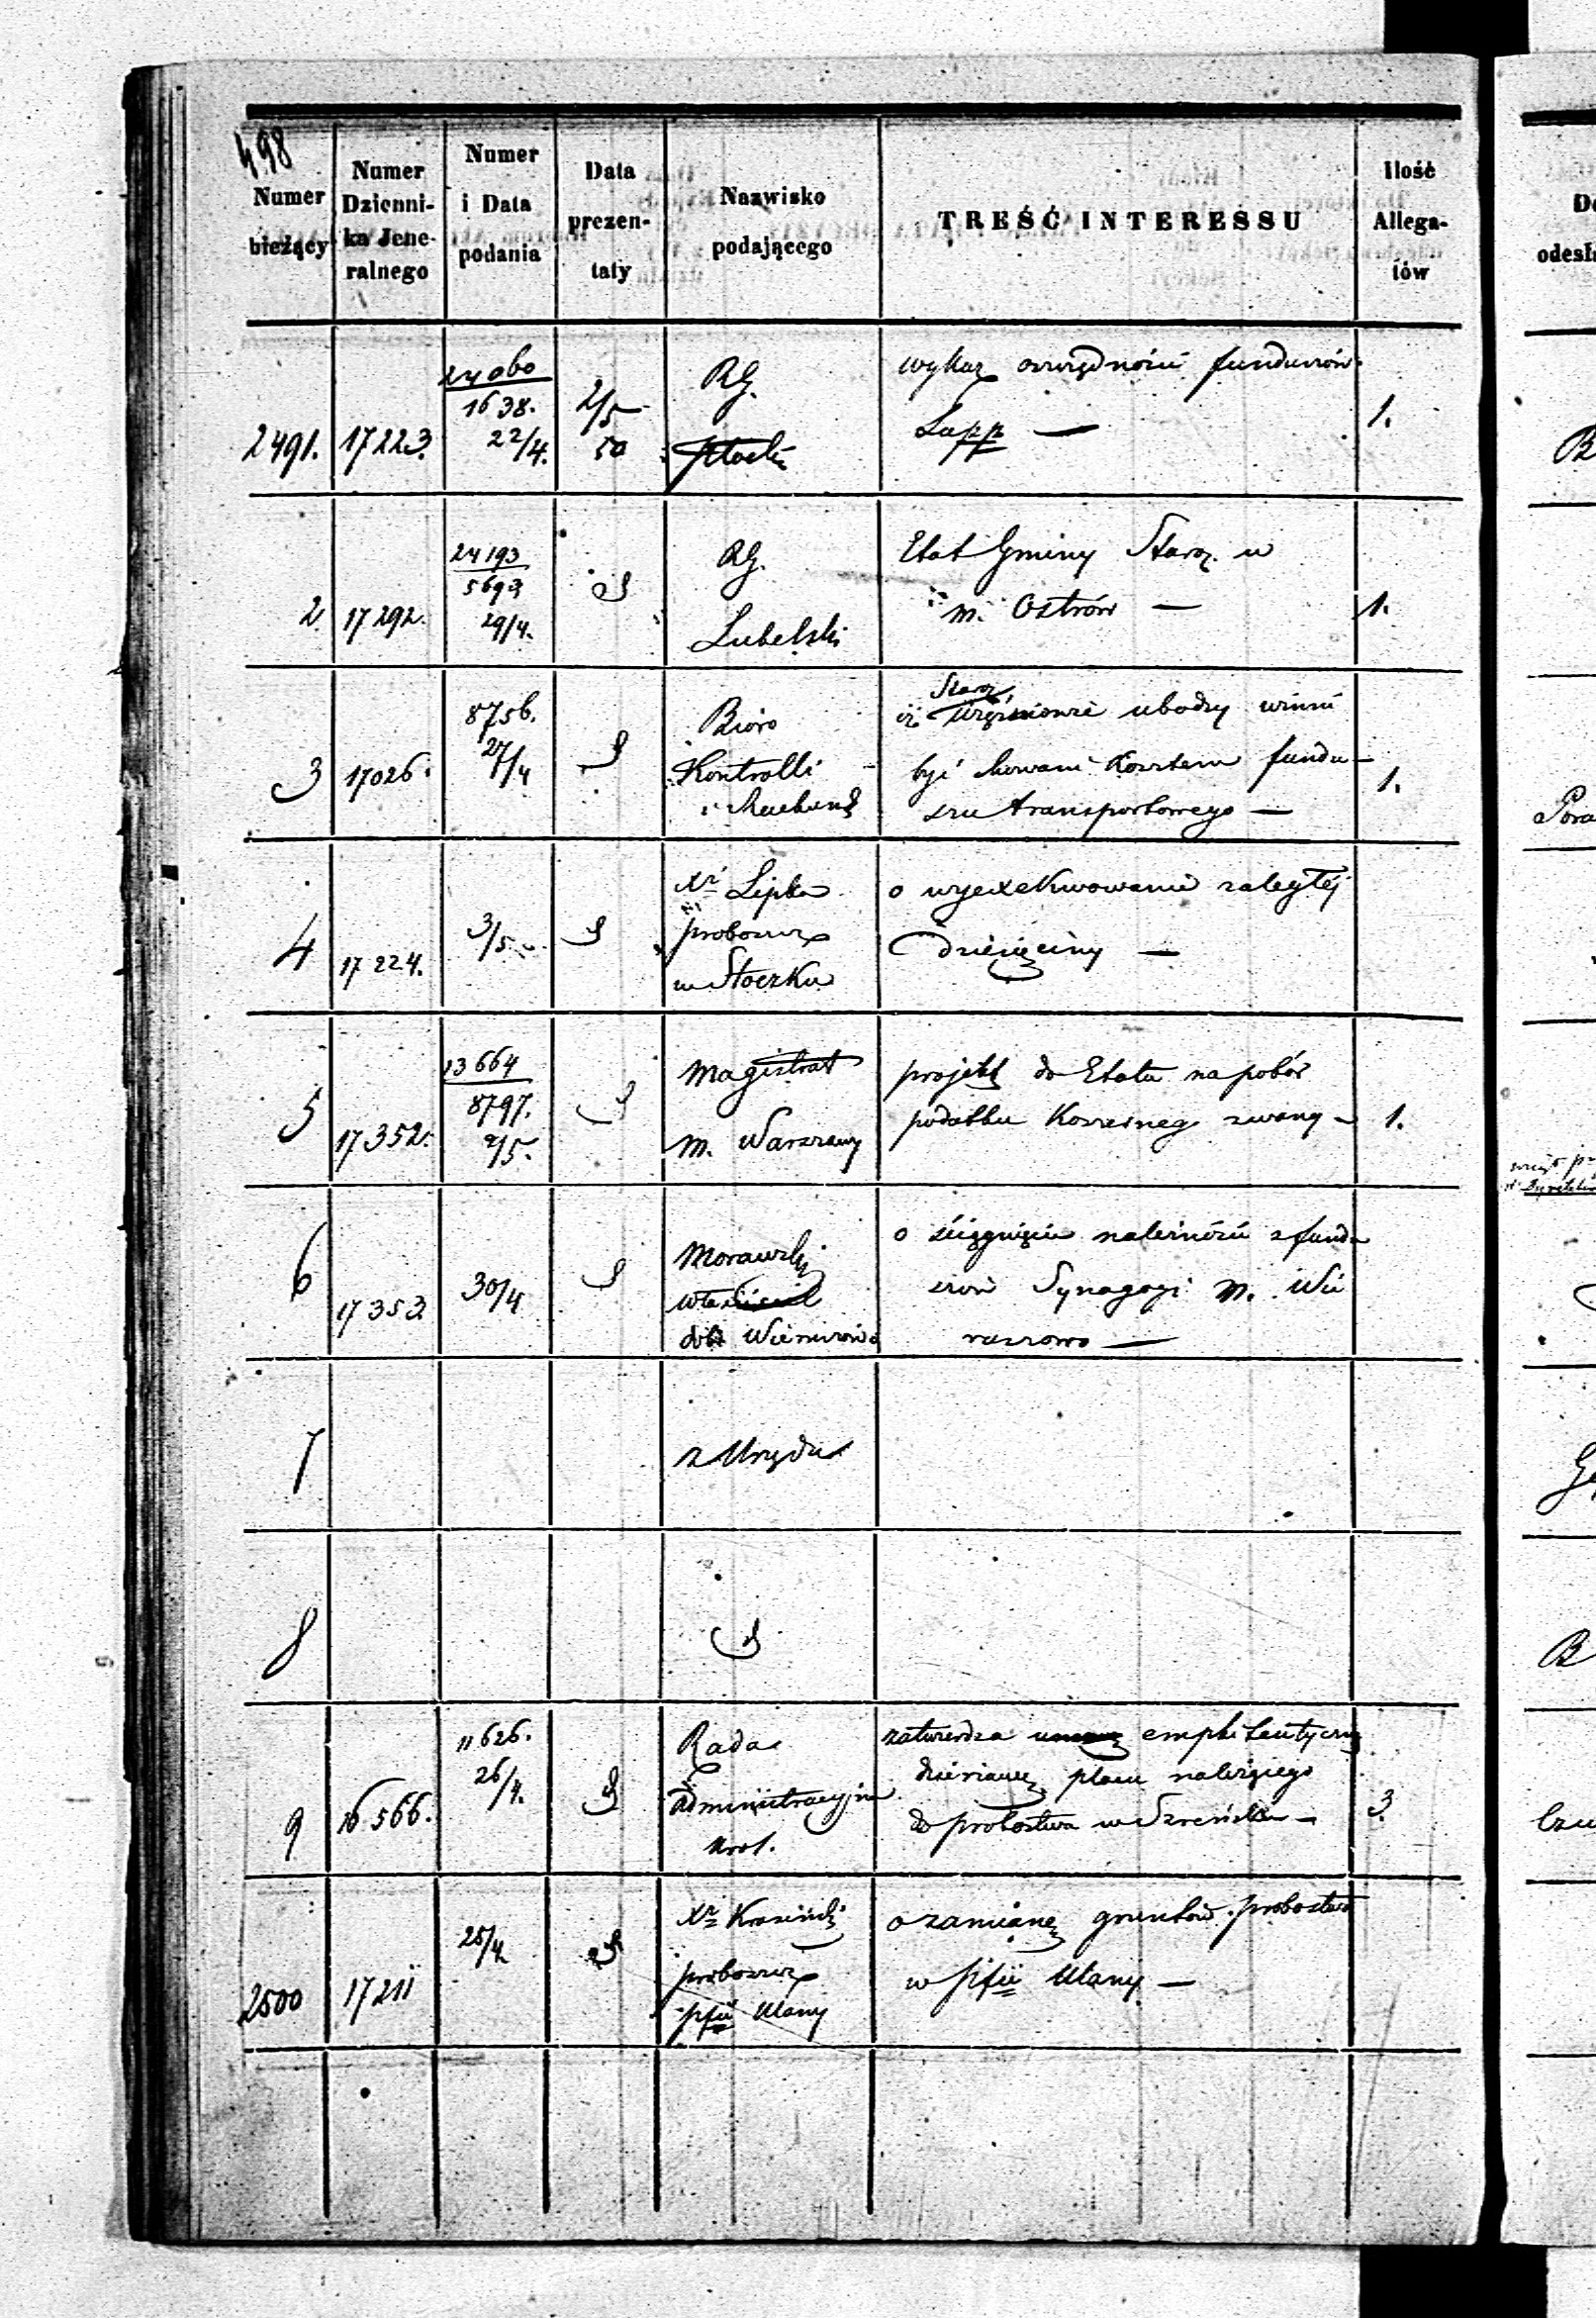 498
Numer bieżący
Numer Dzienni- ka Jene- ralnego
Numer i Data podania
Data prezen- taty
Nazwisko podającego
TREŚĆ INTERESSU
Ilość Allega- tów
2491. 17223. 24060 / 1638. 22/4. 2/5 50 RG. Płocki
wykaz oszczędności funduszów
Supp — 1.
2 17292. 24193 / 5693 29/4. RG. Lubelski
Etat Gminy Staroz. w
m. Ostrów — 1.
3 17026. 8756. 27/4 Bióro Kontrolli i Rachunk
Staroz.
iż Więźniowie ubodzy winni
być chowani kosztem fundu-
szu transportowego — 1.
4 17224. 3/5 Xdz Lipka proboszcz w Stoczku
o wyexekwowanie zaległéj
dziesięciny —
5 17352. 13664 / 8797. 2/5 Magistrat m. Warszawy
projekt do Etatu na pobór
podatku Koszerneg zwany — 1.
6 17353 30/4 Morawski właściciel dóbr
o ściągnięcie należności z fundu
szów Synagogi m.
7 z Urzędu
8
9 16566. 11626. 26/4. Rada Administracyjna Król.
zatwierdza emphiteutyczną
dzierżawę placu należącego
do probostwa w Szreńsku — 3.
2500 17211 25/4 Xdz Krasiński proboszcz pfii Ulany
o zamianę gruntów probostwa
w pfii Ulany —